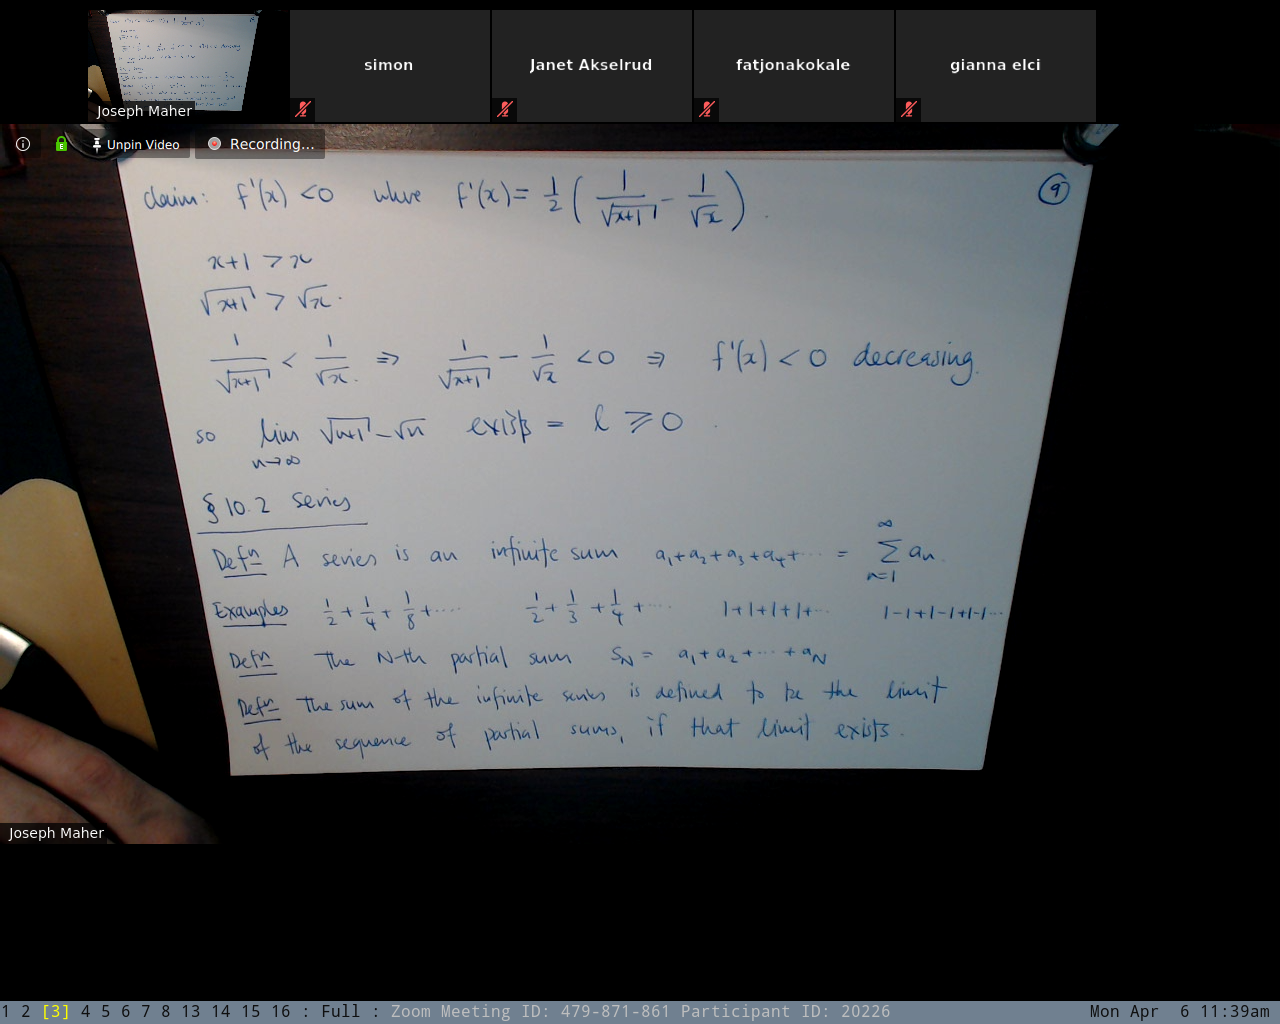 simon
Janet Akselrud
fatjonakokale
gianna elci
Joseph Maher
Unpin Video
Recording...
claim: f'(x) < 0 where f'(x) = 1/2 ( 1/√(x+1) - 1/√x ). 9
x+1 > x
√(x+1) > √x.
1/√(x+1) < 1/√x. ⇒ 1/√(x+1) - 1/√x < 0 ⇒ f'(x) < 0 decreasing.
so lim n→∞ √(n+1) - √n exists = l ⩾ 0.
§ 10.2 Series
Defn A series is an infinite sum a₁+a₂+a₃+a₄+.... = ∑ n=1 ∞ aₙ.
Examples 1/2 + 1/4 + 1/8 + .... 1/2 + 1/3 + 1/4 + .... 1+1+1+1+... 1-1+1-1+1-1...
Defn The N-th partial sum S_N = a₁+a₂+....+a_N
Defn The sum of the infinite series is defined to be the limit
of the sequence of partial sums, if that limit exists.
Joseph Maher
1 2 [3] 4 5 6 7 8 13 14 15 16 : Full : Zoom Meeting ID: 479-871-861 Participant ID: 20226 Mon Apr 6 11:39am